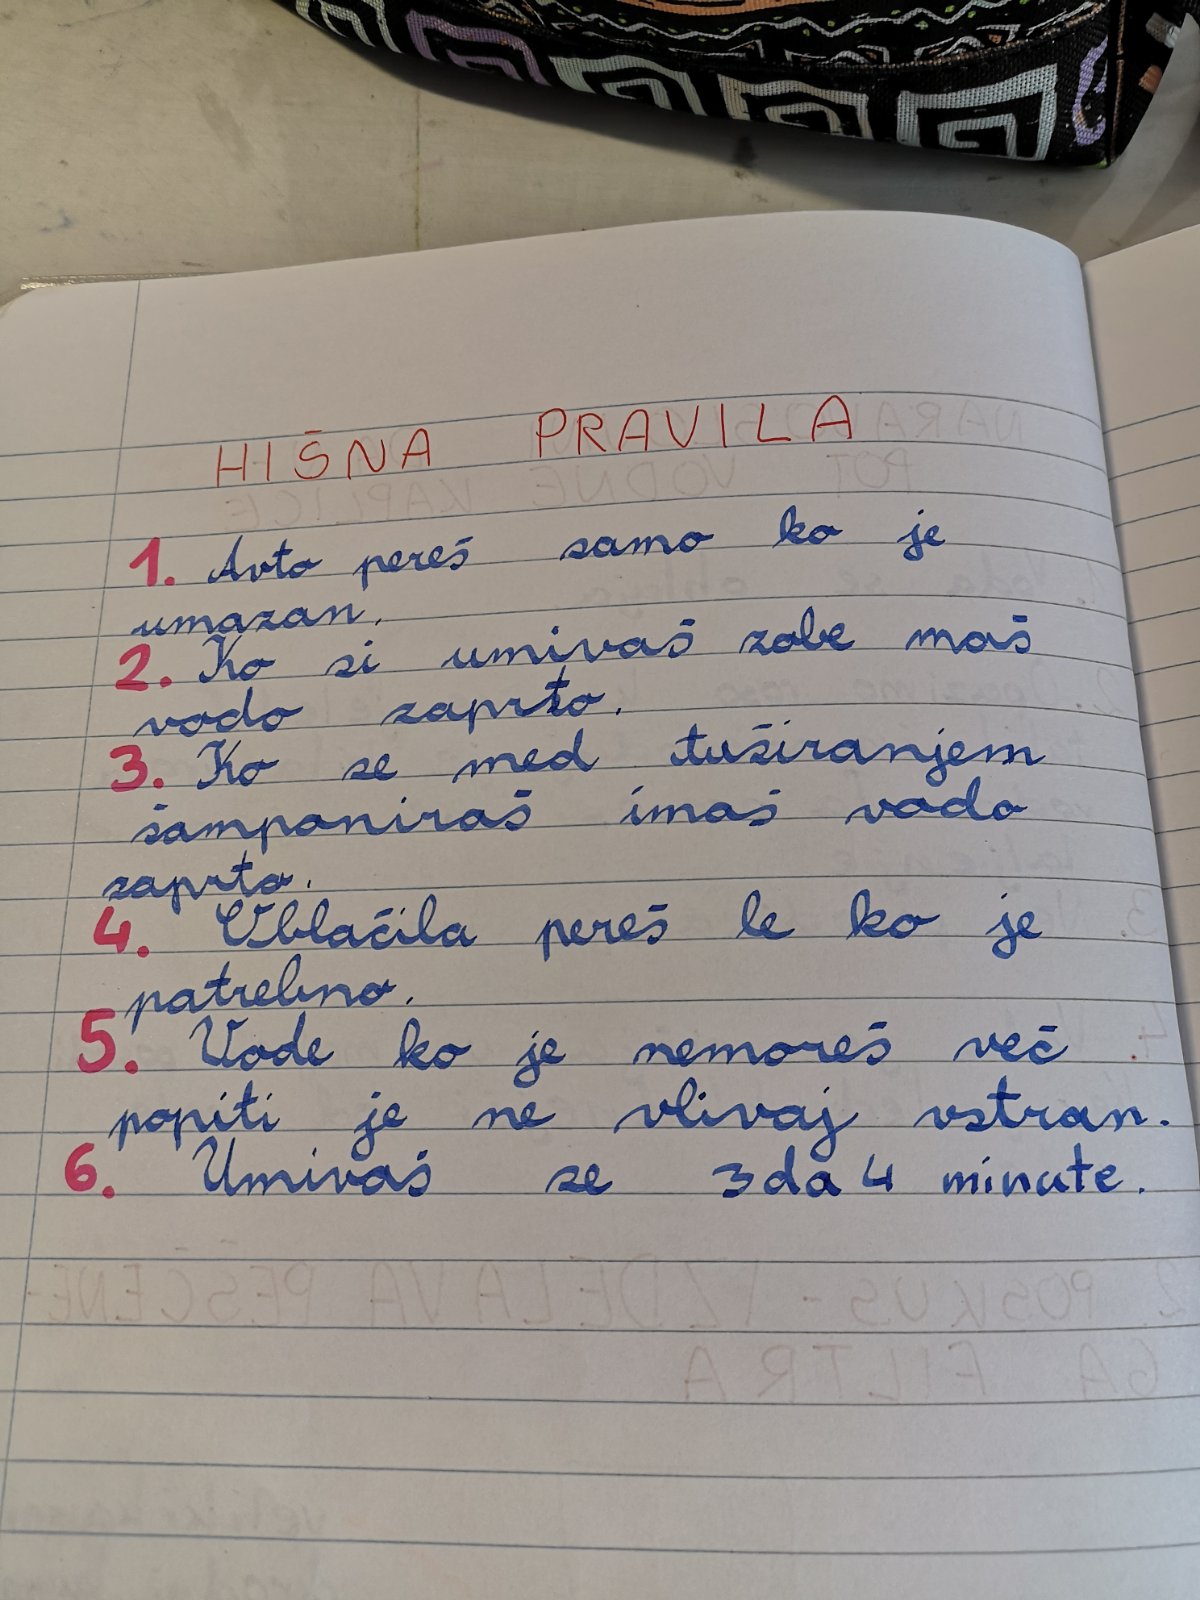 HIŠNA PRAVILA
1. Avto pereš samo ko je
umazan.
2. Ko si umivaš zobe maš
vodo zaprto.
3. Ko se med tuširanjem
šamponiraš imaš vodo
zaprto.
4. Oblačila pereš le ko je
potrebno.
5. Vode ko je nemoreš več
popiti je ne vlivaj vstran.
6. Umivaš se 3 da 4 minute.
2. POSKUS - IZDELAVA PEŠČENE-
GA FILTRA